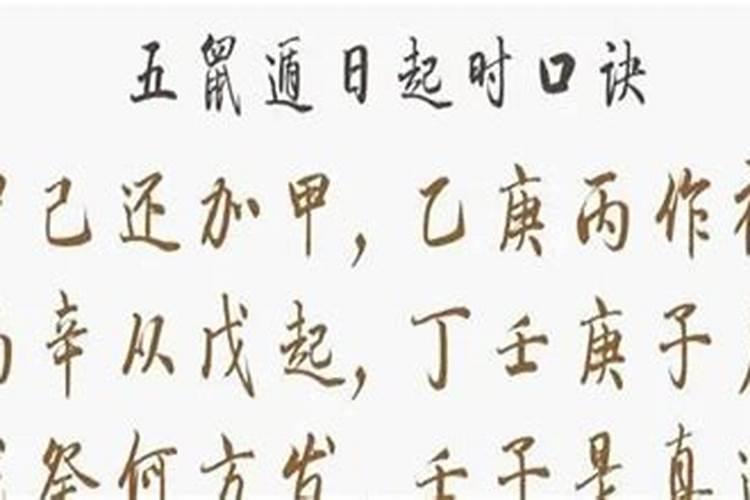 五鼠遁日起时口诀
己还加甲，乙庚丙作
辛从戊起，丁壬庚子
癸何方发 壬子是真